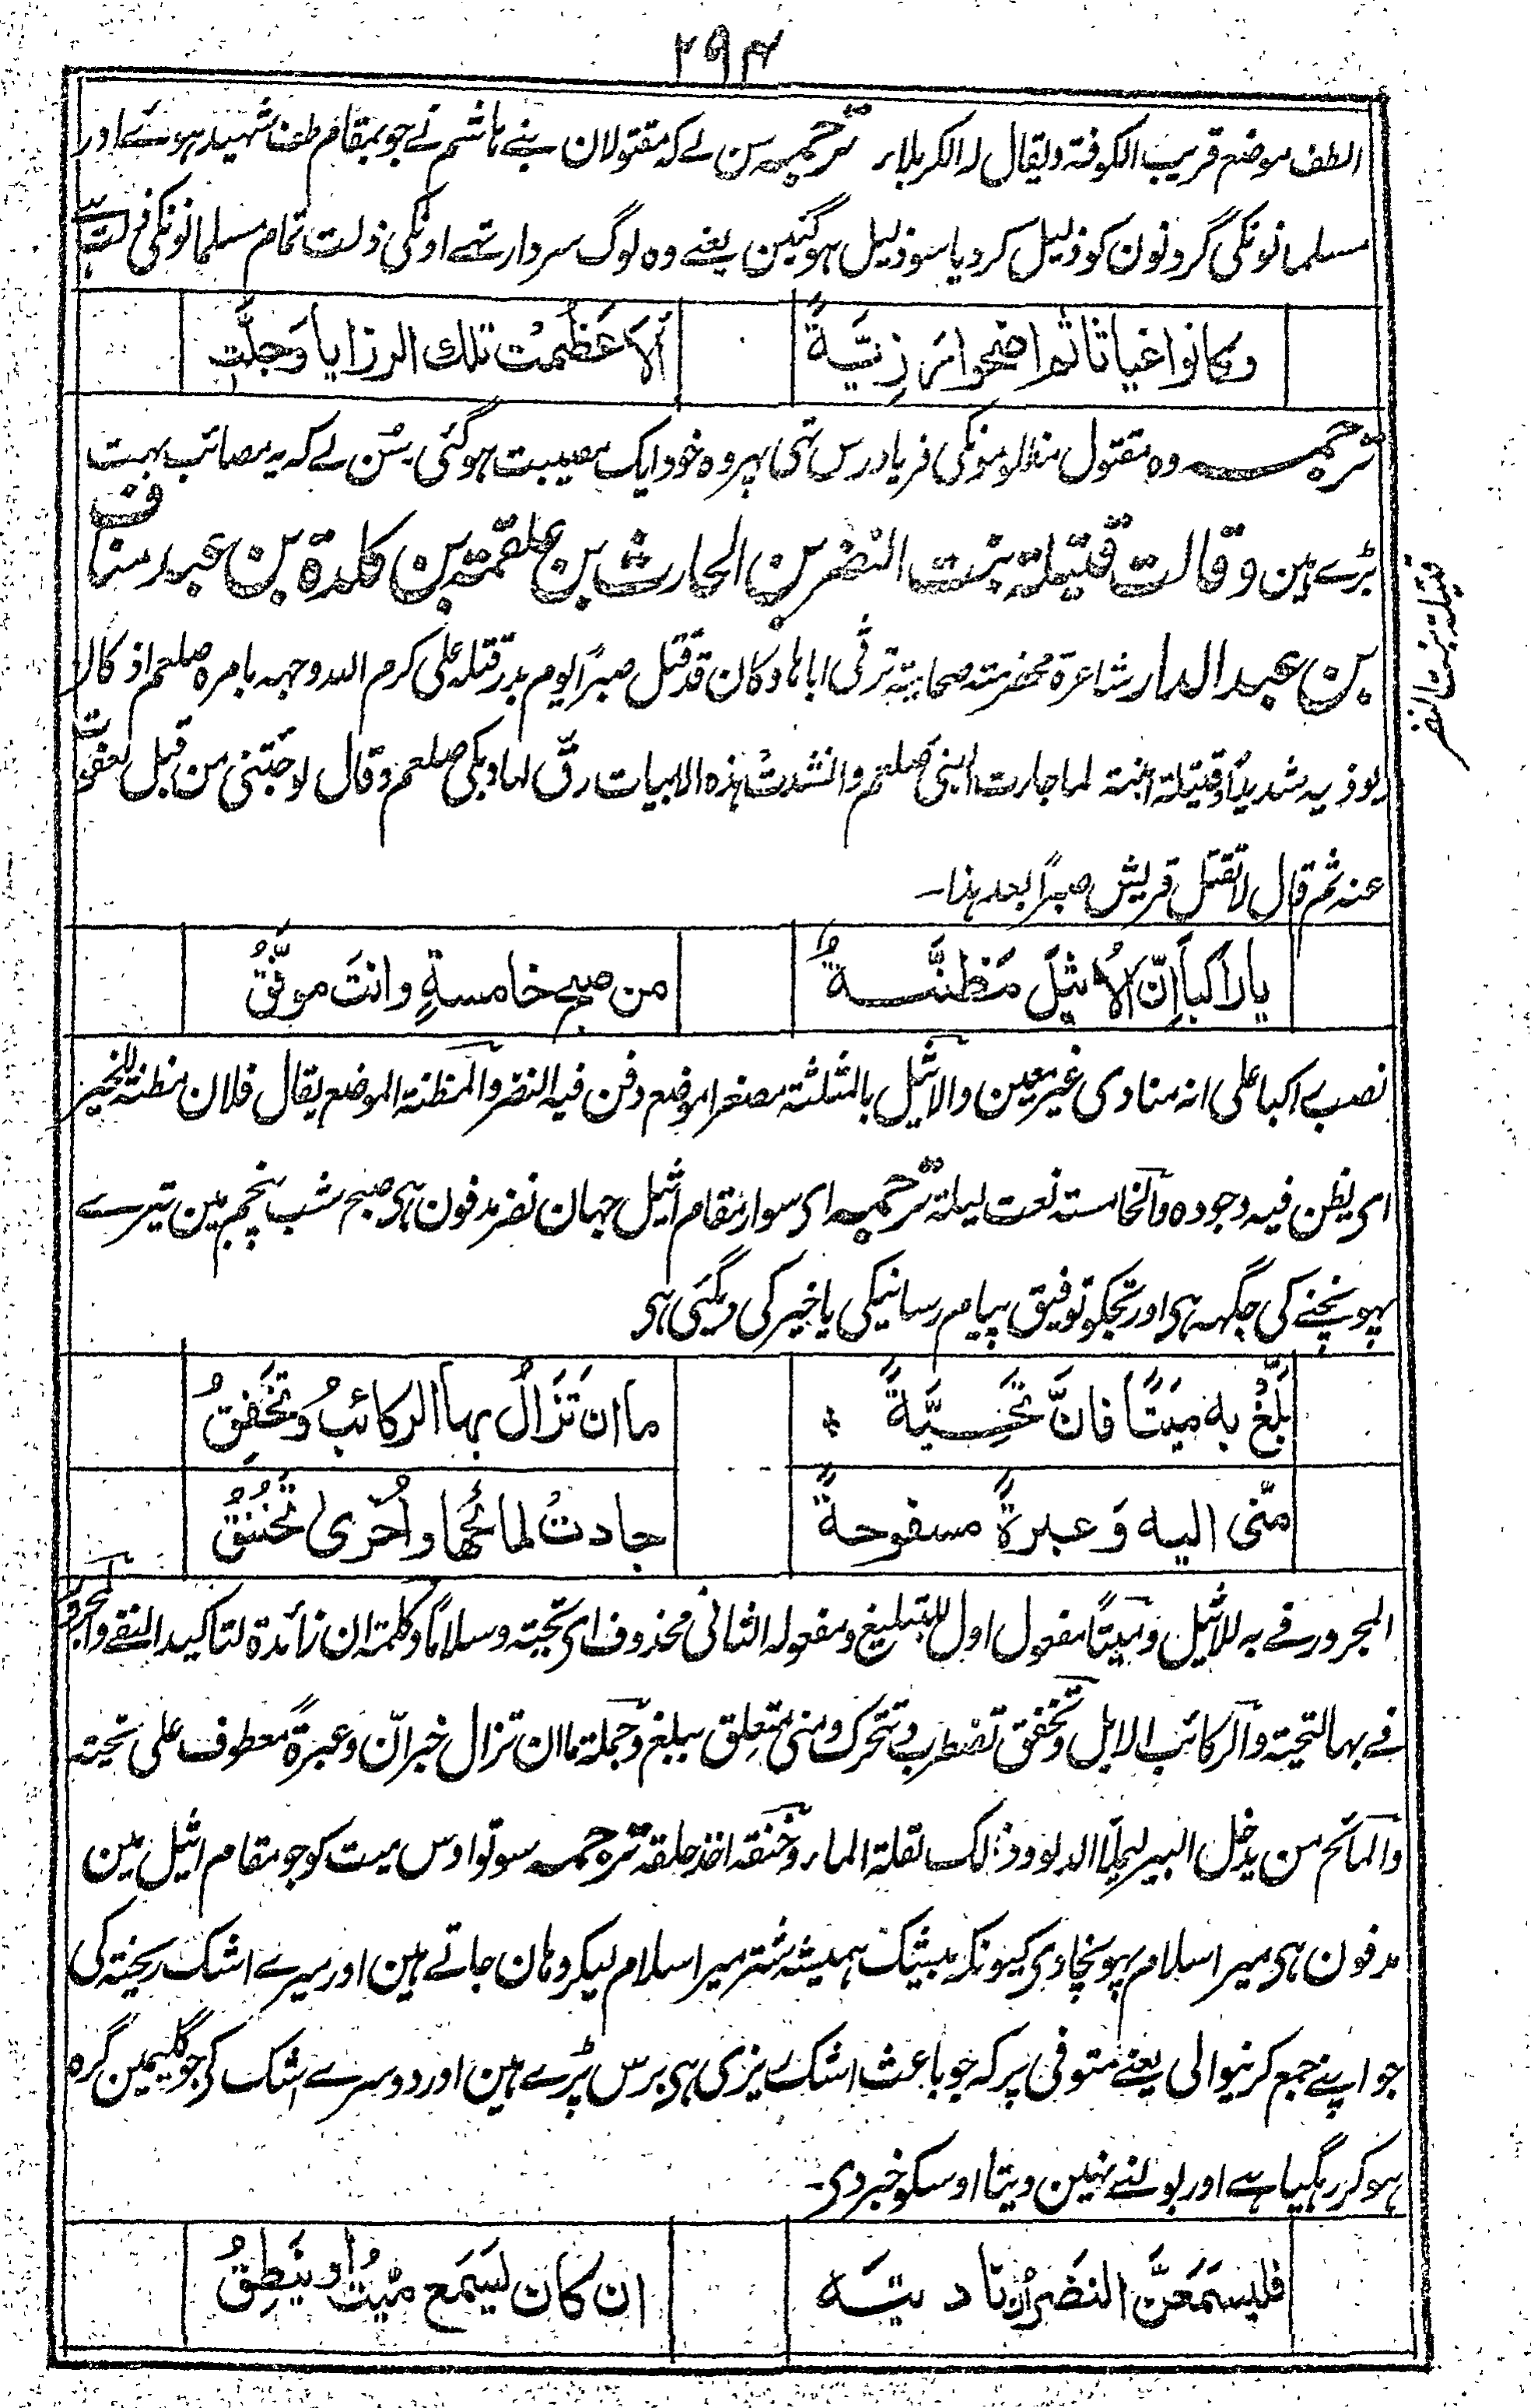 ۲۹۴
الطف موضع قریب الکوفۃ ویقال لہ الکربلاء ترجمہ سن لے کہ مقتولان بنے ہاشم نے جو بمقام طف شہید ہوئے اور
مسلمانونکی گردنون کو ذلیل کر دیا سو ذلیل ہوگئین یعنے وہ لوگ سردار تھے اونکی ذلت تمام مسلمانونکی ذلت ہے
وكانوا غیاثا ثم اضحوا رزِیَّةً
أَلَا عَظُمتْ تلك الرزایا وَجلَّتِ
ترجمہ وہ مقتول مظلومونکی فریاد رس تھی پہر وہ خود ایک مصیبت ہوگئی سُن لے کہ یہ مصائب بہت
بڑے ہین وقالت قتیلة بنت النضر بن الحارث بن علقمة بن كلدة بن عبد مناف
بن عبد الدار شاعرۃ مخضرمتہ صحابیتہ ترثی اباہا وکان قد قتل صبرًا یوم بدر قتلہ علی کرم اللہ وجہہ بامرہ صلعم اذ کان
یوذیہ شدیدًا وقتیلۃ ابنتہ لما جارت النبی صلعم وانشدتْ ہذہ الابیات رقّ لہا وبکی صلعم وقال لو جئتنی من قبل لعفوت
عنہ ثم قال لا تقتل قریش صبرًا بعد ہذا۔
یا راكباً اِنّ الأُثیلَ مَظنَّـــةٌ
من صبح خامسةٍ وانتَ موفَّقُ
نصب راکبا علی انہ منادی غیر معین والاثیل بالمثلثۃ مصغرا موضع دفن فیہ النضر والمظنۃ الموضع یقال فلان مظنۃ للخیر
ای یظن فیہ وجودہ والخامستہ نعت لیلۃ ترجمہ ای سوار مقام اثیل جہان نضر مدفون ہی صبح شب پنجم مین تیرے
پہونچنے کی جگہہ ہی اور تجکو توفیق پیام رسانیکی یا خیر کی دیگئی ہی
بَلِّغْ به مَیتًا فانَّ تَحِیَّةً
ما ان تَزالُ بها الركائبُ وَتَخْفِقُ
منّی الیه وَعبرةً مسفوحةً
جادتْ لمائحها واُخرى تَخنُقُ
المجرور فے بہ للاثیل ومَیتًا مفعول اول للتبلیغ ومفعولہ الثانی محذوف ای تحیتہ وسلامًا وکلمۃ ان زائدۃ لتاکید النفے والمجرور
فے بہا للتحیتہ والرکائب الابل وتخفق تضطرب وتتحرک ومنی متعلق ببلغ وجملۃ ما ان تزال خبر انّ وعبرۃً معطوف علی تحیتہ
والمائح من یدخل البیر لیملأ الدلو وذلک لقلۃ الماء وخنقہ اخذ حلقہ ترجمہ سو تو اوس میت کو جو مقام اثیل مین
مدفون ہی میرا سلام پہونچا دی کیونکہ بیشک ہمیشہ شتر میرا سلام لیکر وہان جاتے ہین اور میرے اشک ریختہ کی
جو اپنے جمع کرنیوالی یعنے متوفی پر کہ جو باعث اشک ریزی ہی برس پڑے ہین اور دوسرے اشک کی جو گلیمین گرہ
ہوکر رہگیا ہے اور بولنے نہین دیتا اوسکو خبر دی۔
فلیسمَعَنَّ النضرُ ان نادیتَه
ان كان یَسْمَع مَیْتٌ أو یَنطِقُ
قتیلۃ بنت النضر